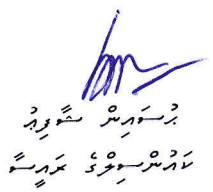 ޙުސައިން ޝާފިޢު
ކައުންސިލްގެ ރައީސާ